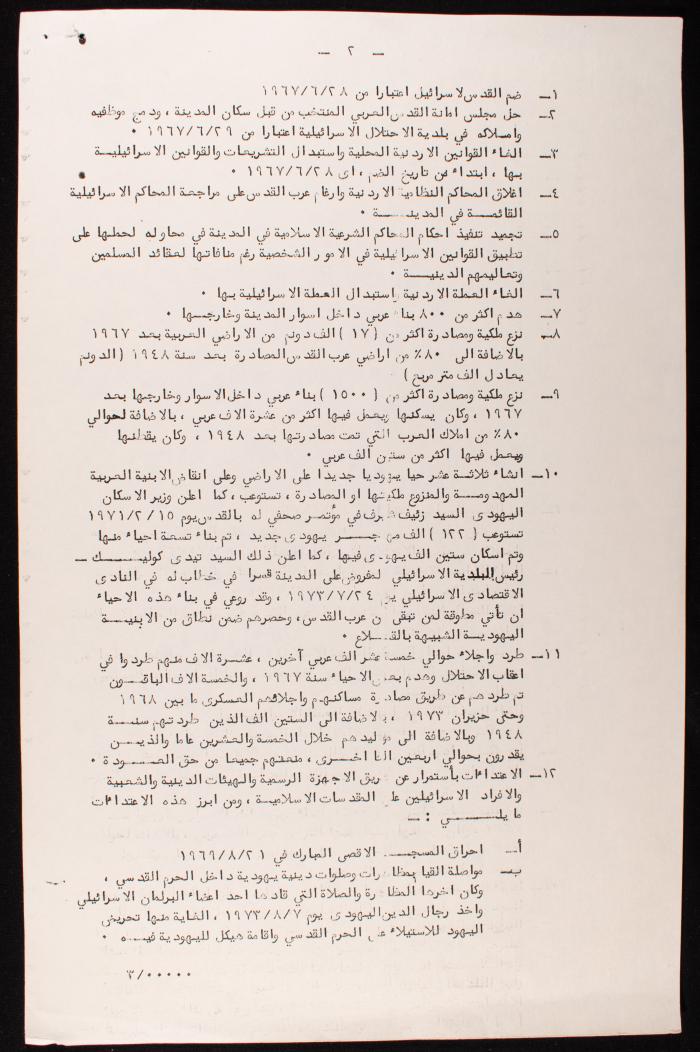 — ٢ —
١— ضم القدس لاسرائيل اعتبارا من ١٩٦٧/٦/٢٨
٢— حل مجلس امانة القدس العربي المنتخب من قبل سكان المدينة ، ودمج موظفيه
واملاكه في بلدية الاحتلال الاسرائيلية اعتبارا من ١٩٦٧/٦/٢٩ ٠
٣— الغاء القوانين الاردنية المحلية واستبدال التشريعات والقوانين الاسرائيليــة
بها ، ابتداء من تاريخ الضم ، اى ١٩٦٧/٦/٢٨ ٠
٤— اغلاق المحاكم النظامية الاردنية وارغام عرب القدس على مراجعة المحاكم الاسرائيلية
القائمــة في المدينــــة ٠
٥— تجميد تنفيذ احكام المحاكم الشرعية الاسلامية في المدينة في محاوله لحملها على
تطبيق القوانين الاسرائيلية في الامور الشخصية رغم منافاتها لعقائد المسلمين
وتعاليمهم الدينيــة ٠
٦— الغاء العملة الاردنية واستبدال العملة الاسرائيلية بها ٠
٧— هدم اكثر من ٨٠٠ بناء عربي داخل اسوار المدينة وخارجــها ٠
٨— نزع ملكية ومصادرة اكثر من (١٧) الف دونم من الاراضي العربية بعد ١٩٦٧
بالاضافة الى ٨٠٪ من اراضي عرب القدس المصادرة بعد سنة ١٩٤٨ (الدونم
يعادل الف متر مربع)
٩— نزع ملكية ومصادرة اكثر من (١٥٠٠) بناء عربي داخل الاسوار وخارجها بعد
١٩٦٧ ، وكان يسكنها ويعمل فيها اكثر من عشرة الاف عربي ، بالاضافة لحوالي
٨٠٪ من املاك العرب التي تمت مصادرتها بعد ١٩٤٨ ، وكان يقطنها
ويعمل فيها اكثر من ستين الف عربي ٠
١٠— انشاء ثلاثة عشر حيا يهوديا جديدا على الاراضي وعلى انقاض الابنية العربية
المهدومــة والمنزوع ملكيتها او المصادرة ، تستوعب ، كما اعلن وزير الاسكان
اليهودى السيد زئيف شرف في مؤتمر صحفي له بالقدس يوم ١٩٧١/٢/١٥
تستوعب (١٢٢) الف مهاجــــر يهودى جديد ، تم بناء تسعة احياء منها
وتم اسكان ستين الف يهودى فيها ، كما اعلن ذلك السيد تيدى كوليــــك —
رئيس البلدية الاسرائيلي المفروض على المدينة قسرا في خطاب له في النادى
الاقتصادى الاسرائيلي يوم ١٩٧٣/٧/٢٤ ، وقد روعي في بناء هذه الاحياء
ان تأتي مطوقة لمن تبقى من عرب القدس، وحصرهم ضمن نطاق من الابنيــة
اليهوديــة الشبيهة بالقــلاع ٠
١١— طرد واجلاء حوالي خمسة عشر الف عربي آخرين ، عشــرة الاف منهم طردوا في
اعقاب الاحتلال وهدم بعض الاحياء سنة ١٩٦٧ ، والخمسة الاف الباقــون
تم طردهم عن طريق مصادرة مساكنهم واجلائهم العسكرى ما بين ١٩٦٨
وحتى حزيران ١٩٧٣ ، بالاضافة الى الستين الف الذين طردتهم سنــة
١٩٤٨ وبالاضافة الى مواليدهم خلال الخمسة والعشرين عاما والذيــن
يقدرون بحوالي اربعين الفا اخــرى ، منعتهم جميعا من حق العــــودة ٠
١٢— الاعتداءات بأستمرار عن طريق الاجهزة الرسمية والهيئات الدينية والشعبية
والافراد الاسرائيلين على المقدسات الاسلاميــة ، ومن ابرز هذه الاعتداءات
ما يلـــي : —
أ— احراق المسجــد الاقصى المبارك في ١٩٦٩/٨/٢١
ب— مواصلة القيام بمظاهرات وصلوات دينية يهودية داخل الحرم القدسي ،
وكان اخرها المظاهرة والصلاة التي قادها احد اعضاء البرلمان الاسرائيلي
واخذ رجال الدين اليهودى يوم ١٩٧٣/٨/٧ ، الغاية منها تحريض
اليهود للاستيلاء على الحرم القدسي واقامة هيكل لليهودية فيــه ٠
٣/٠٠٠٠٠